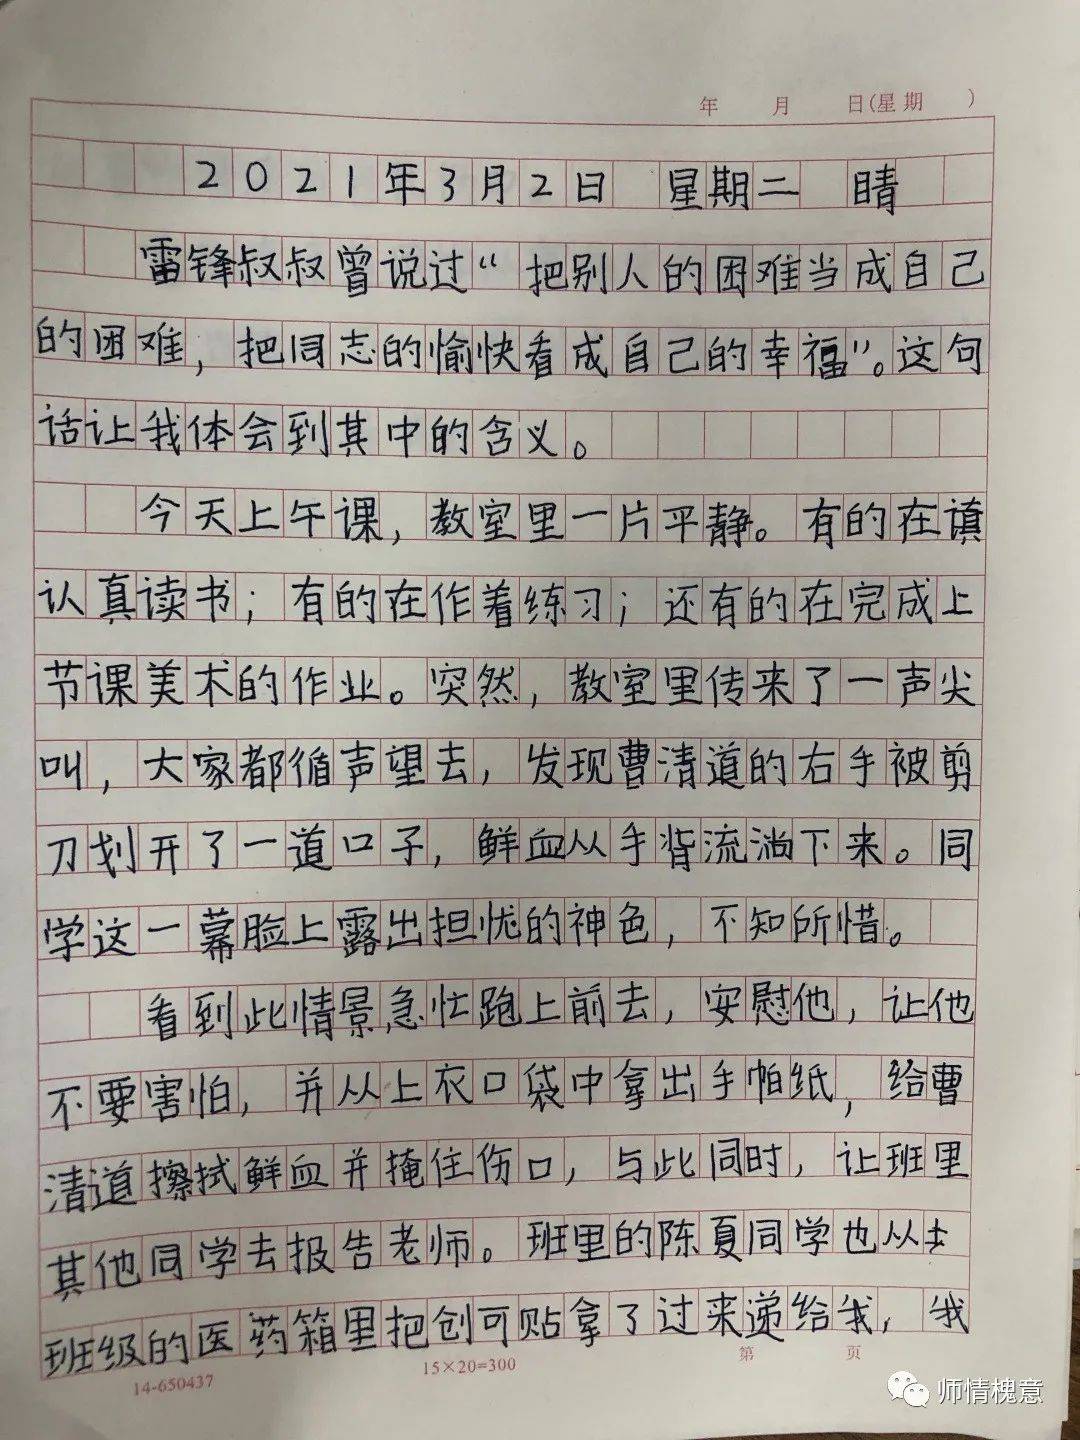 年 月 日(星期 )
2021年3月2日 星期二 晴
雷锋叔叔曾说过“把别人的困难当成自己
的困难，把同志的愉快看成自己的幸福”。这句
话让我体会到其中的含义。
今天上午课，教室里一片平静。有的在
认真读书；有的在作着练习；还有的在完成上
节课美术的作业。突然，教室里传来了一声尖
叫，大家都循声望去，发现曹清道的右手被剪
刀划开了一道口子，鲜血从手背流淌下来。同
学这一幕脸上露出担忧的神色，不知所惜。
看到此情景急忙跑上前去，安慰他，让他
不要害怕，并从上衣口袋中拿出手帕纸，给曹
清道擦拭鲜血并掩住伤口，与此同时，让班里
其他同学去报告老师。班里的陈夏同学也从去
班级的医药箱里把创可贴拿了过来递给我，我
14-650437 15×20=300 第 页
师情槐意